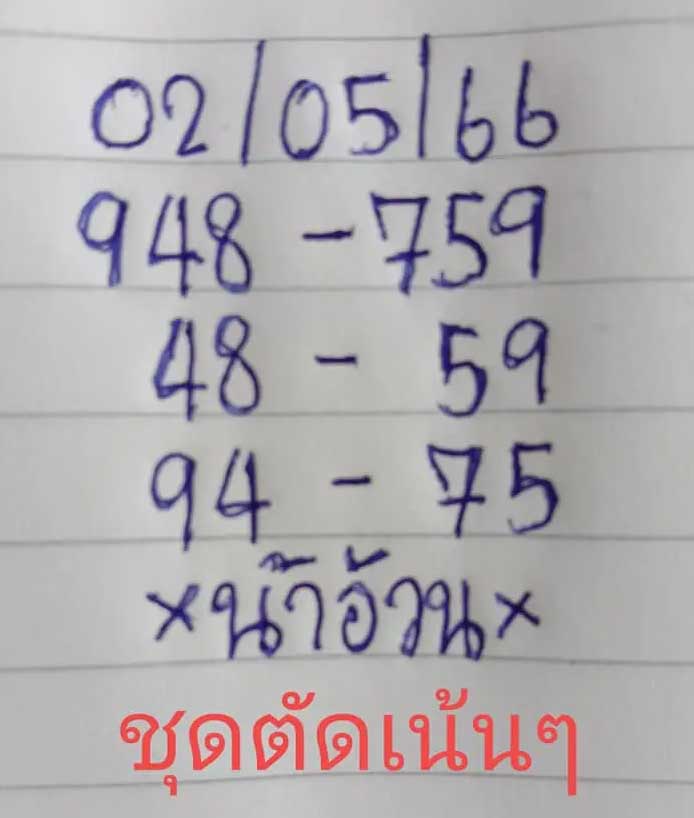 02/05/66
948 - 759
48 - 59
94 - 75
×น้าอ้วน×
ชุดตัดเน้นๆ